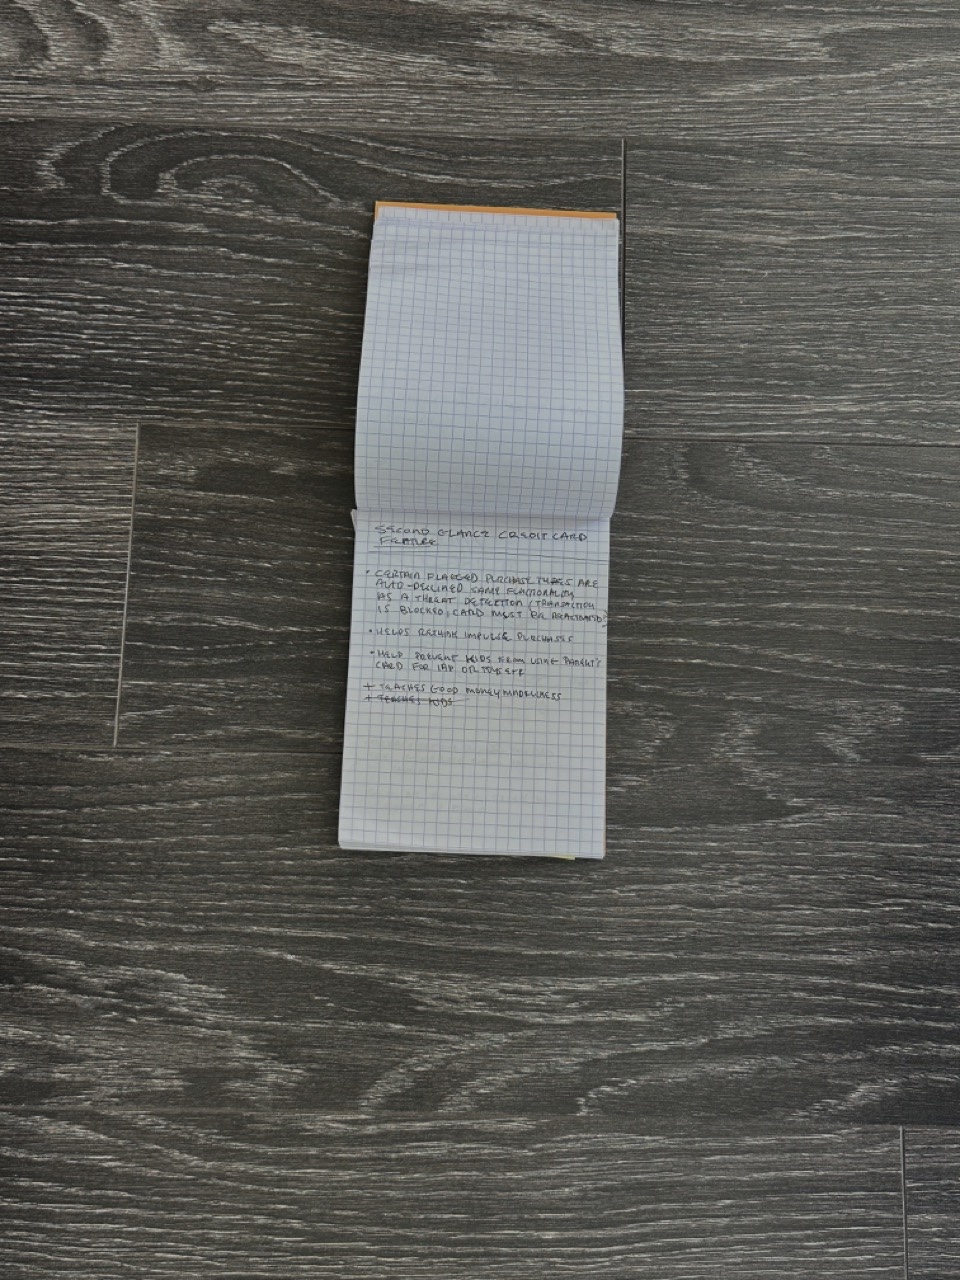 SECOND GLANCE CREDIT CARD
FEATURE
• CERTAIN FLAGGED PURCHASE TYPES ARE
AUTO-DECLINED SAME FUNCTIONALITY
AS A THREAT DETECTION (TRANSACTION
IS BLOCKED, CARD MUST BE REACTIVATED)
• HELPS RETHINK IMPULSE PURCHASES
• HELP PREVENT KIDS FROM USING PARENT'S
CARD FOR IAP OR
+ TEACHES GOOD MONEY MINDFULNESS
+ TEACHES KIDS